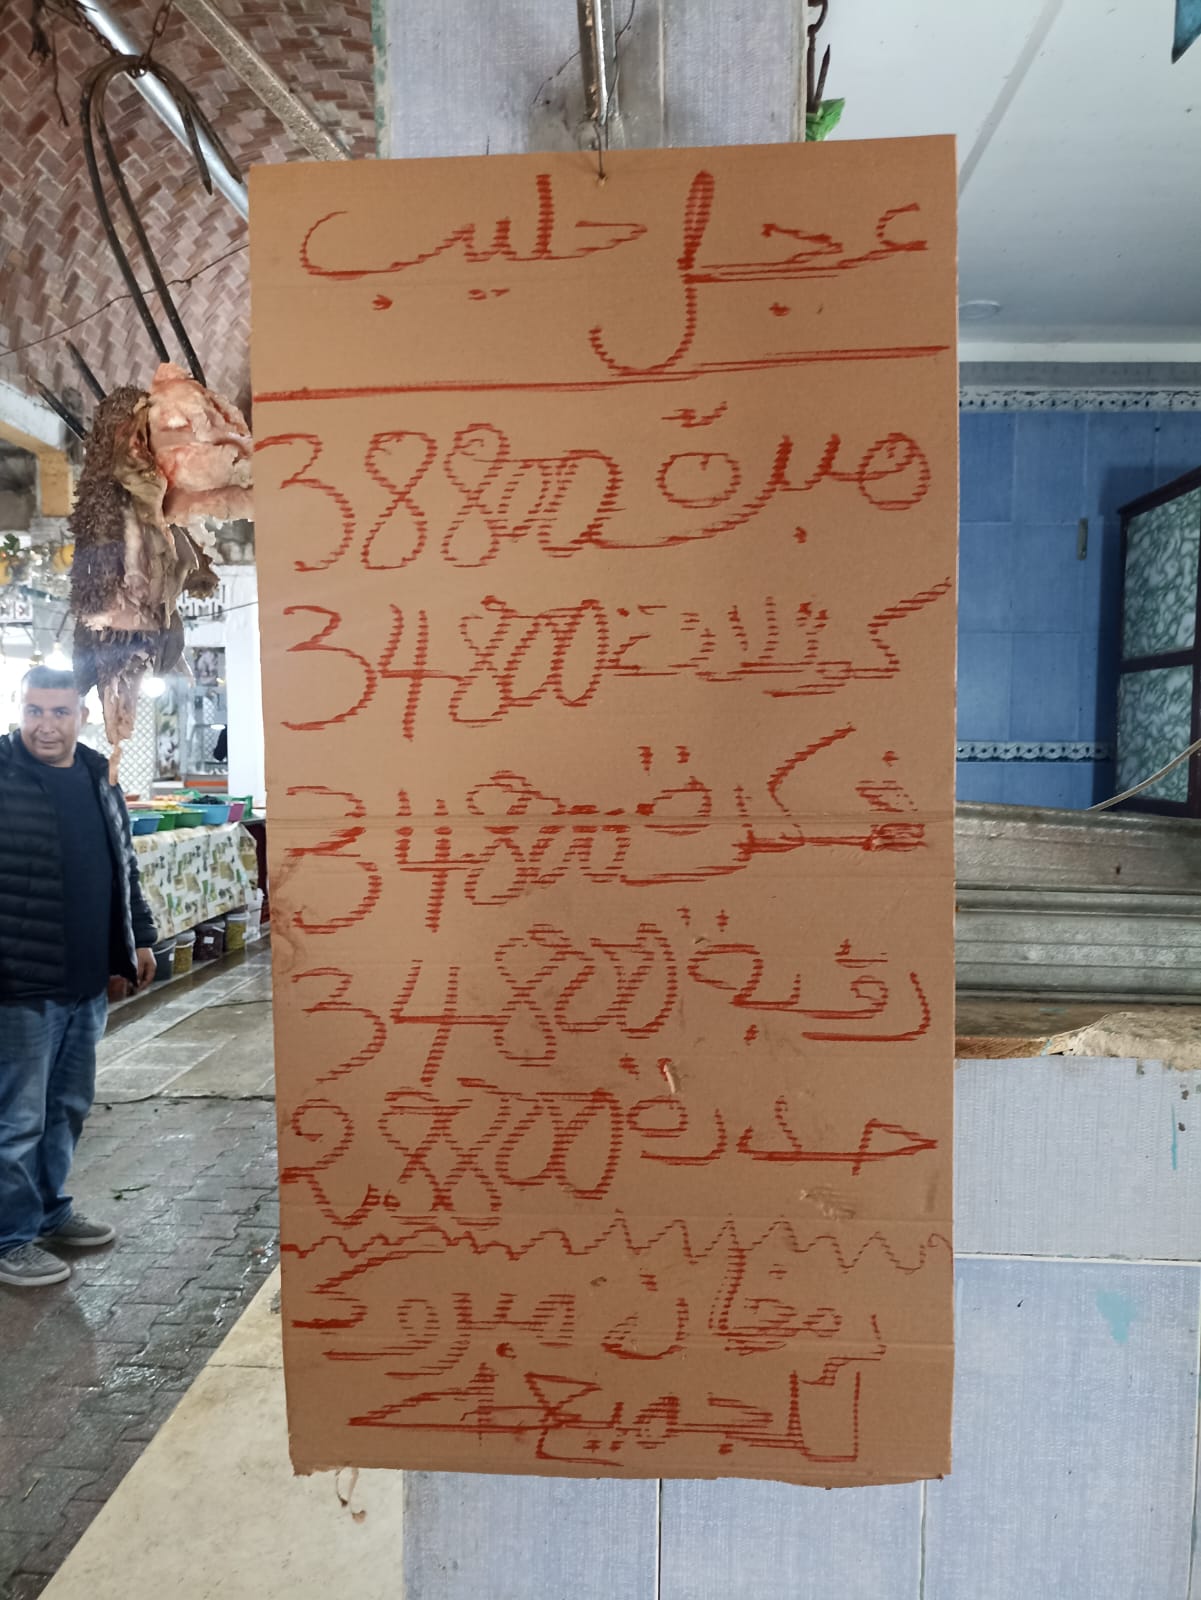 عجل حليب
هبرة 38800
كتلات 34800
فكرة 34800
رقبة 34800
صدرة 28800
رمضان مبروك
للجميع